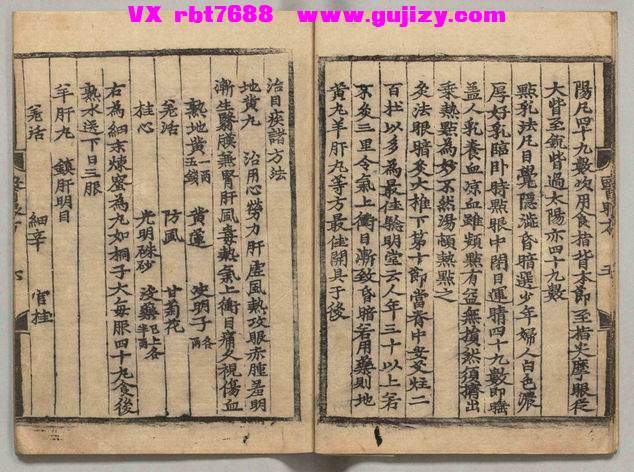 VX rbt7688 www.gujizy.com
陽凡四十九數次用食指背本節至指尖摩眼從
大眥至銳眥過太陽亦四十九數
點乳法凡目覺隱澁昏暗選少年婦人白色濃
厚好乳臨卧時點眼中閉目運睛四十九數即睡
盖人乳養血凉血雖頻點有益無損然須擠出
乘熱點為妙不然湯頓熱點之
灸法眼暗灸大椎下第十節當脊中安灸二
百壯以多為最佳驗明堂云人年三十以上若
不灸三里令氣上衝目漸致昏暗若用藥則地
黄丸羊肝丸等方最佳開具于後
治目疾諸方法
地黄丸 治用心勞力肝虚風熱攻眼赤腫羞明
漸生翳膜兼腎肝風毒熱氣上衝目痛久視傷血
熟地黄一兩五錢 黄連 决明子各一兩
羌活 防風 甘菊花
桂心 光明硃砂 沒藥已上各半兩
右為細末煉蜜為丸如桐子大每服四十九食後
熟水送下日三服
羊肝丸 鎮肝明目
羌活 細辛 官桂